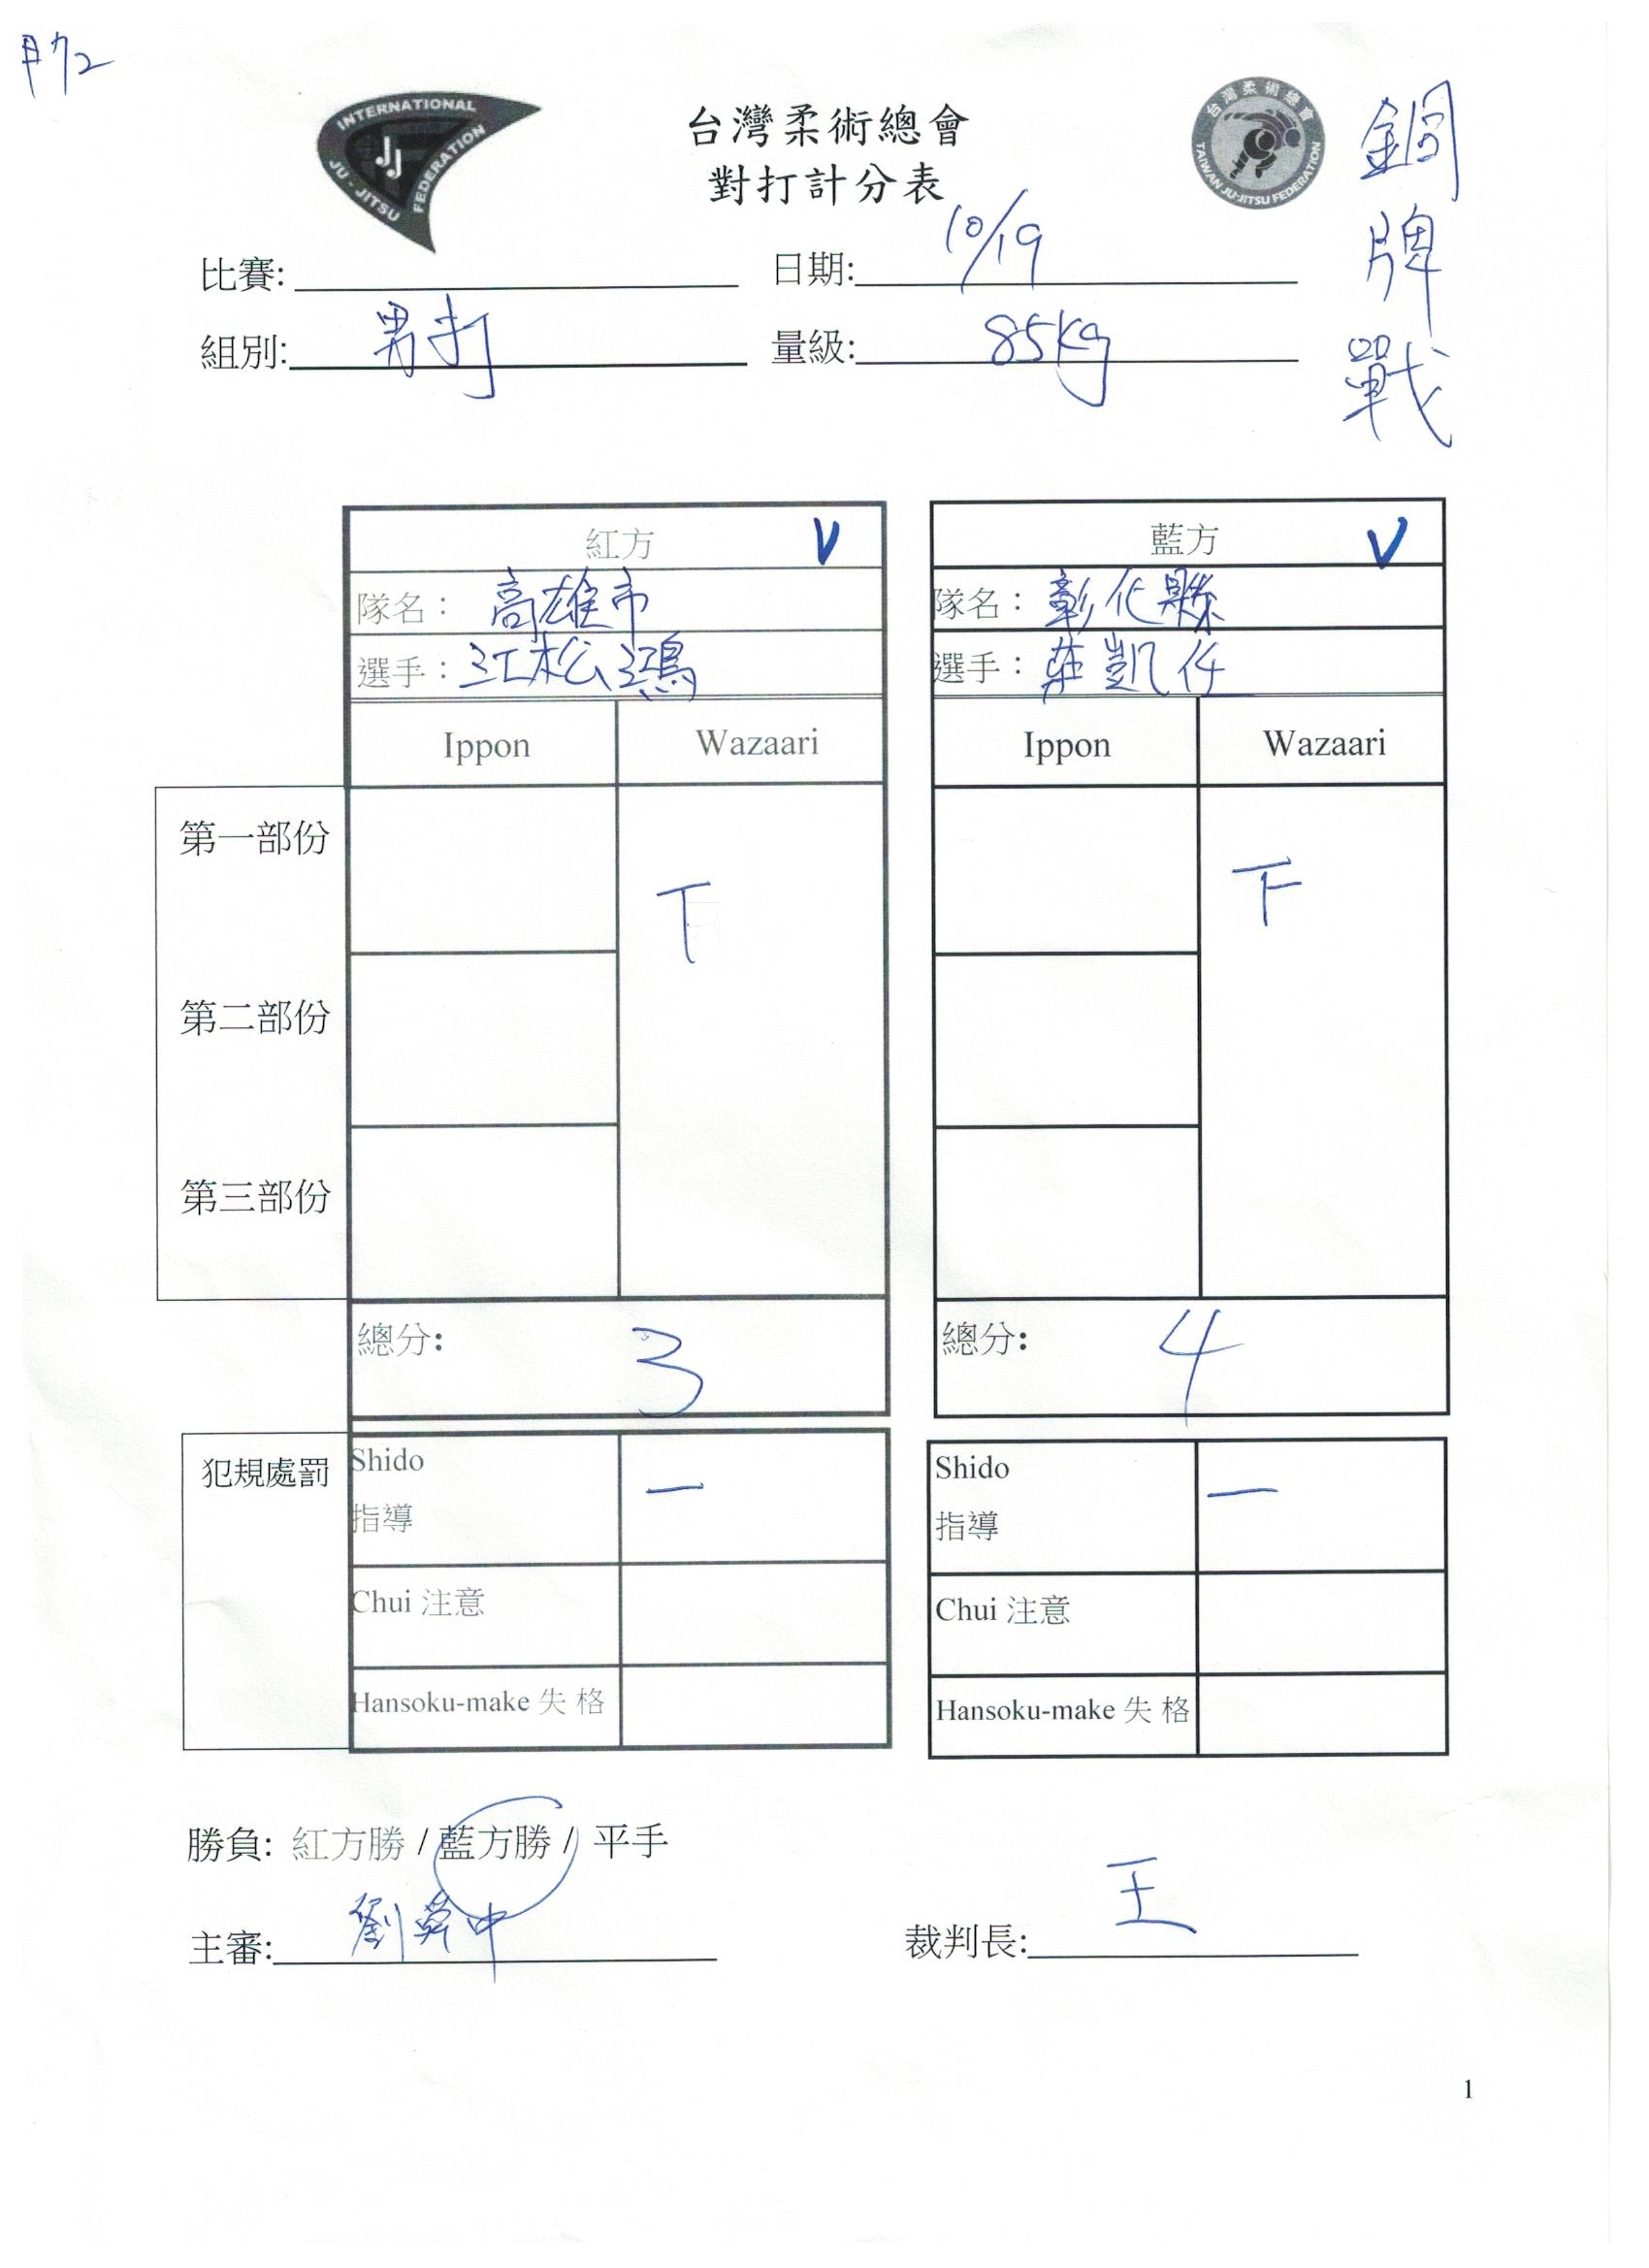 INTERNATIONAL
JU-JITSU
FEDERATION
JJ
台灣柔術總會
TAIWAN JU-JITSU FEDERATION
銅牌戰
台灣柔術總會
對打計分表
比賽: 日期: 10/19
組別: 男打 量級: 85kg
紅方 V 藍方 V
隊名: 高雄市 隊名: 彰化縣
選手: 江松鴻 選手: 莊凱仔
Ippon Wazaari Ippon Wazaari
第一部份 T 下
第二部份
第三部份
總分: 3 總分: 4
犯規處罰 Shido 一 Shido 一
指導 指導
Chui 注意 Chui 注意
Hansoku-make 失 格 Hansoku-make 失 格
勝負: 紅方勝 / 藍方勝 / 平手
主審: 劉 中 裁判長: 王
1